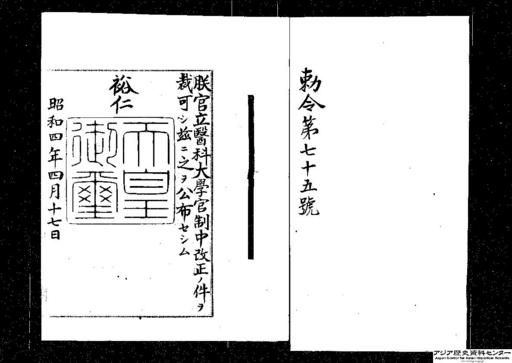 勅令第七十五號
朕官立醫科大學官制中改正ノ件ヲ
裁可シ茲ニ之ヲ公布セシム
裕仁
天皇
御璽
昭和四年四月十七日
アジア歴史資料センター
Japan Center for Asian Historical Records